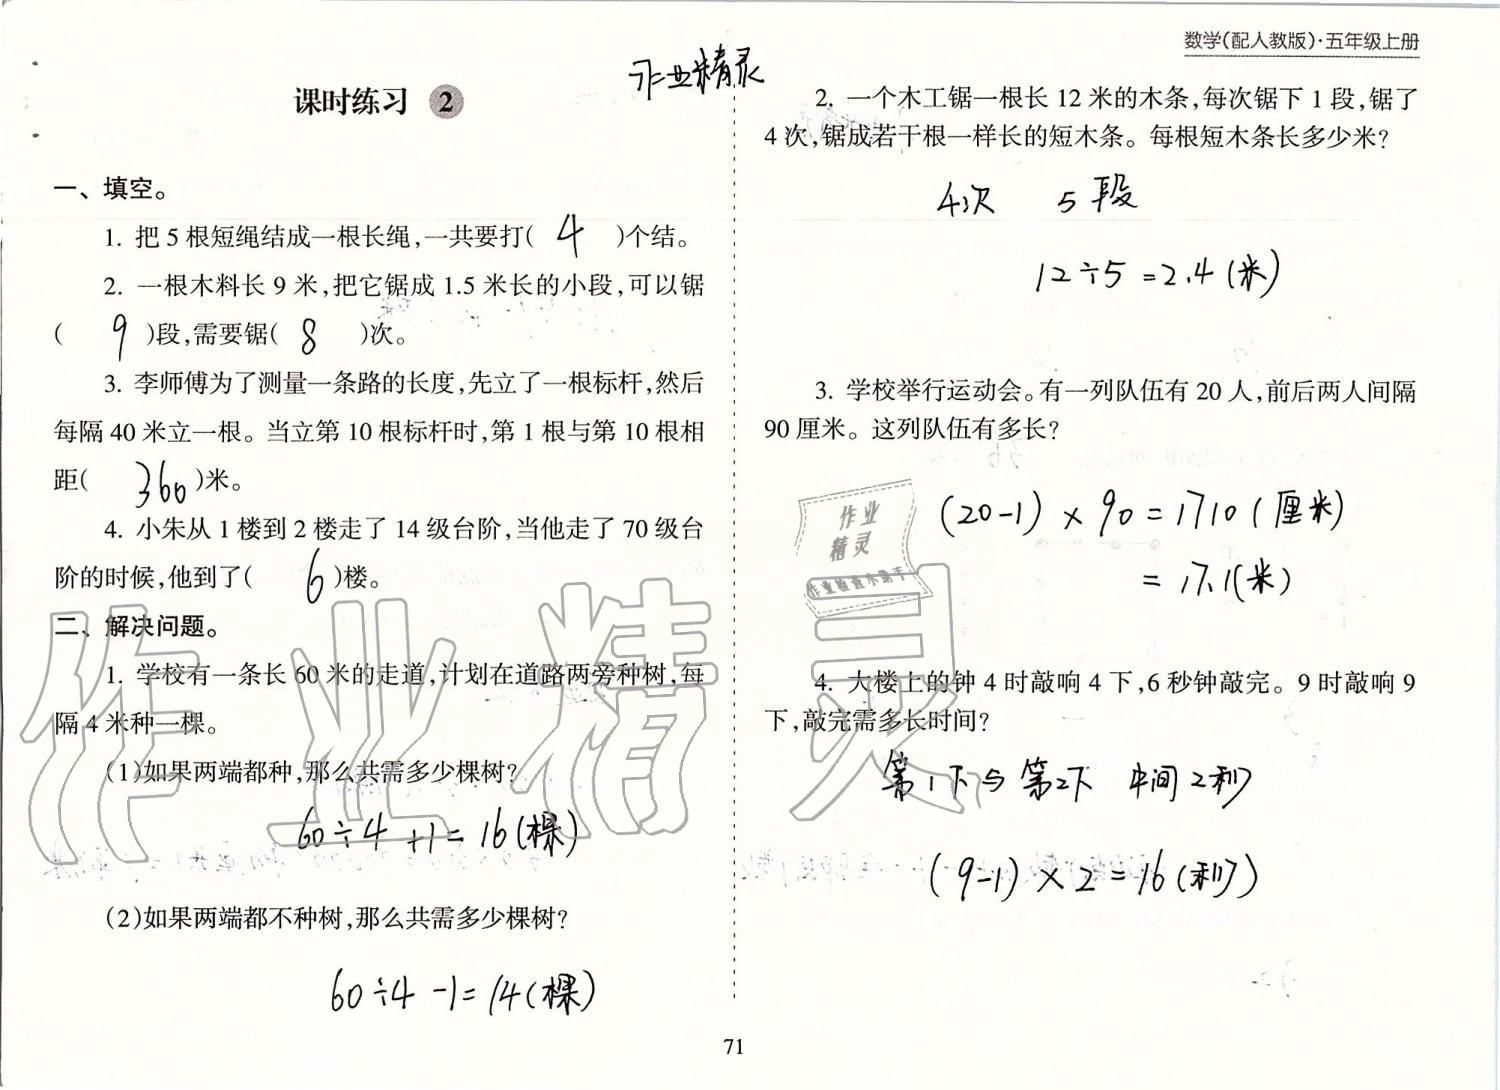 数学(配人教版)·五年级上册
作业精灵
课时练习 2
一、填空。
1. 把5根短绳结成一根长绳,一共要打( 4 )个结。
2. 一根木料长9米,把它锯成1.5米长的小段,可以锯
( 9 )段,需要锯( 8 )次。
3. 李师傅为了测量一条路的长度,先立了一根标杆,然后
每隔40米立一根。当立第10根标杆时,第1根与第10根相
距( 360 )米。
4. 小朱从1楼到2楼走了14级台阶,当他走了70级台
阶的时候,他到了( 6 )楼。
二、解决问题。
1. 学校有一条长60米的走道,计划在道路两旁种树,每
隔4米种一棵。
(1)如果两端都种,那么共需多少棵树?
60÷4+1=16(棵)
(2)如果两端都不种树,那么共需多少棵树?
60÷4-1=14(棵)
2. 一个木工锯一根长12米的木条,每次锯下1段,锯了
4次,锯成若干根一样长的短木条。每根短木条长多少米?
4次 5段
12÷5=2.4(米)
3. 学校举行运动会。有一列队伍有20人,前后两人间隔
90厘米。这列队伍有多长?
(20-1)×90=1710(厘米)
=17.1(米)
4. 大楼上的钟4时敲响4下,6秒钟敲完。9时敲响9
下,敲完需多长时间?
第1下与第2下 中间2秒
(9-1)×2=16(秒)
作业
精灵
作业检查小助手
作业精灵
71